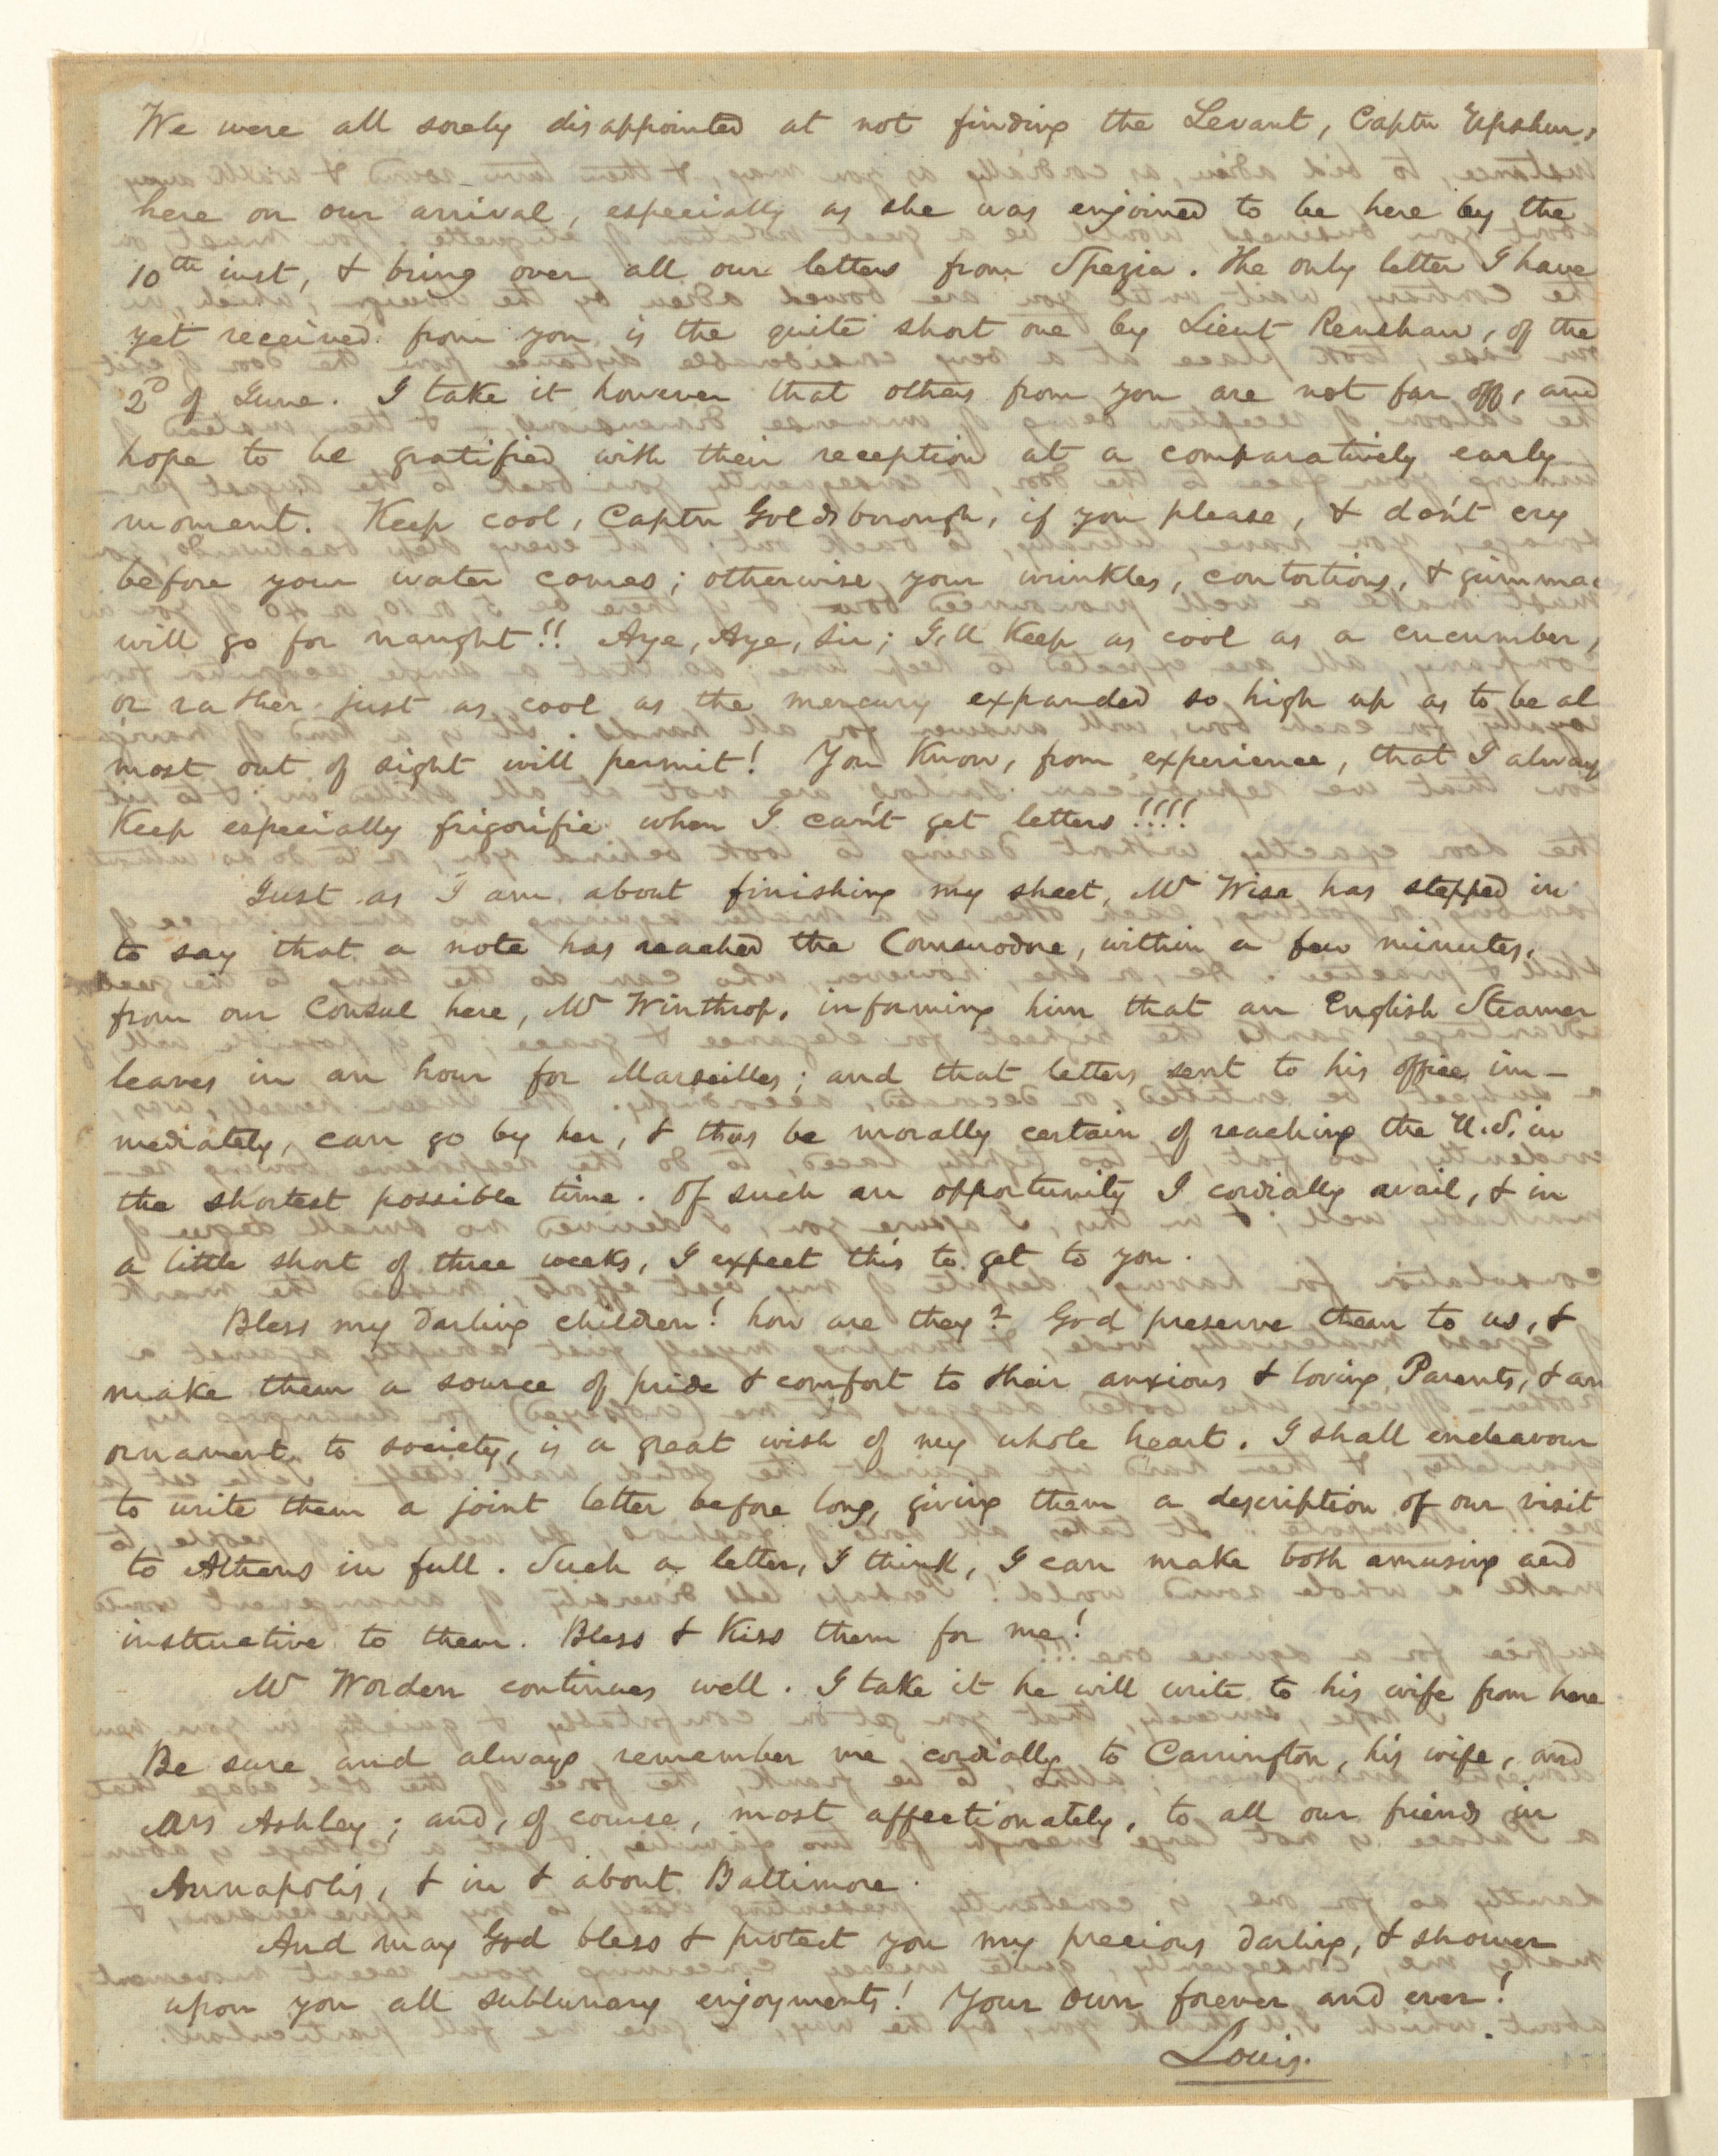 We were all sorely disappointed at not finding the Levant, Captn Upshur,
here on our arrival, especially as she was enjoined to be here by the
10th inst, & bring over all our letters from Spezia. The only letter I have
yet received from you is the quite short one by Lieut Renshaw, of the
2D of June. I take it however that others from you are not far off, and
hope to be gratified with their reception at a comparatively early
moment. Keep cool, Captn Goldsborough, if you please, & don't cry
before your water comes; otherwise your wrinkles, contortions, & grimmac
will go for naught!! Aye, Aye, Sir; I'll Keep as cool as a cucumber,
or rather just as cool as the mercury expanded so high up as to be al
most out of sight will permit! You Know, from experience, that I always
Keep especially frigorific when I can't get letters!!!!
Just as I am about finishing my sheet, Mr Wise has stepped in
to say that a note has reached the Commodore, within a few minutes,
from our Consul here, Mr Winthrop, informing him that an English Steamer
leaves in an hour for Marseilles; and that letters sent to his office im-
mediately, can go by her, & thus be morally certain of reaching the U.S. in
the shortest possible time. Of such an opportunity I cordially avail, & in
a little short of three weeks, I expect this to get to you.
Bless my darling children! how are they? God preserve them to us, &
make them a source of pride & comfort to their anxious & loving Parents, & an
ornament to society, is a great wish of my whole heart. I shall endeavour
to write them a joint letter before long, giving them a description of our visit
to Athens in full. Such a letter, I think, I can make both amusing and
instructive to them. Bless & Kiss them for me!
Mr Worden continues well. I take it he will write to his wife from here
Be sure and always remember me cordially to Carrington, his wife, and
Mrs Ashley; and, of course, most affectionately, to all our friends in
Annapolis, & in & about Baltimore.
And may God bless & protect you my precious darling, & shower
upon you all sublunary enjoyments! Your own forever and ever!
Louis.